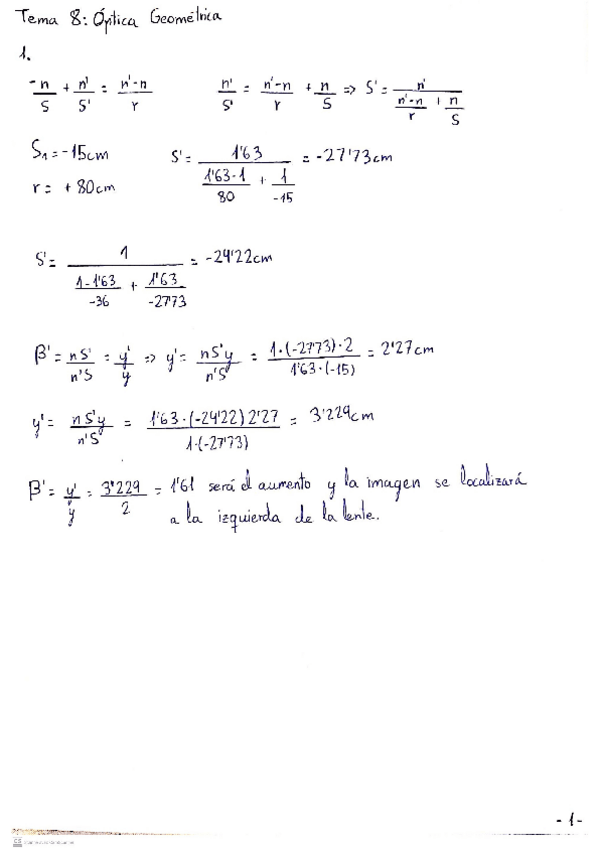 Tema 8: Óptica Geométrica
1.
-n/S + n'/S' = n'-n/r    n'/S' = n'-n/r + n/S => S' = n'/(n'-n/r + n/S)
S₁ = -15cm    S' = 1'63/(1'63-1/80 + 1/-15) = -27'73cm
r = +80cm
S' = 1/(1-1'63/-36 + 1'63/-27'73) = -24'22cm
β' = nS'/n'S = y'/y => y' = nS'y/n'S = 1·(-27'73)·2/1'63·(-15) = 2'27cm
y' = nS'y/n'S = 1'63·(-24'22)2'27/1·(-27'73) = 3'229cm
β' = y'/y = 3'229/2 = 1'61 será el aumento y la imagen se localizará
a la izquierda de la lente.
-1-
CS